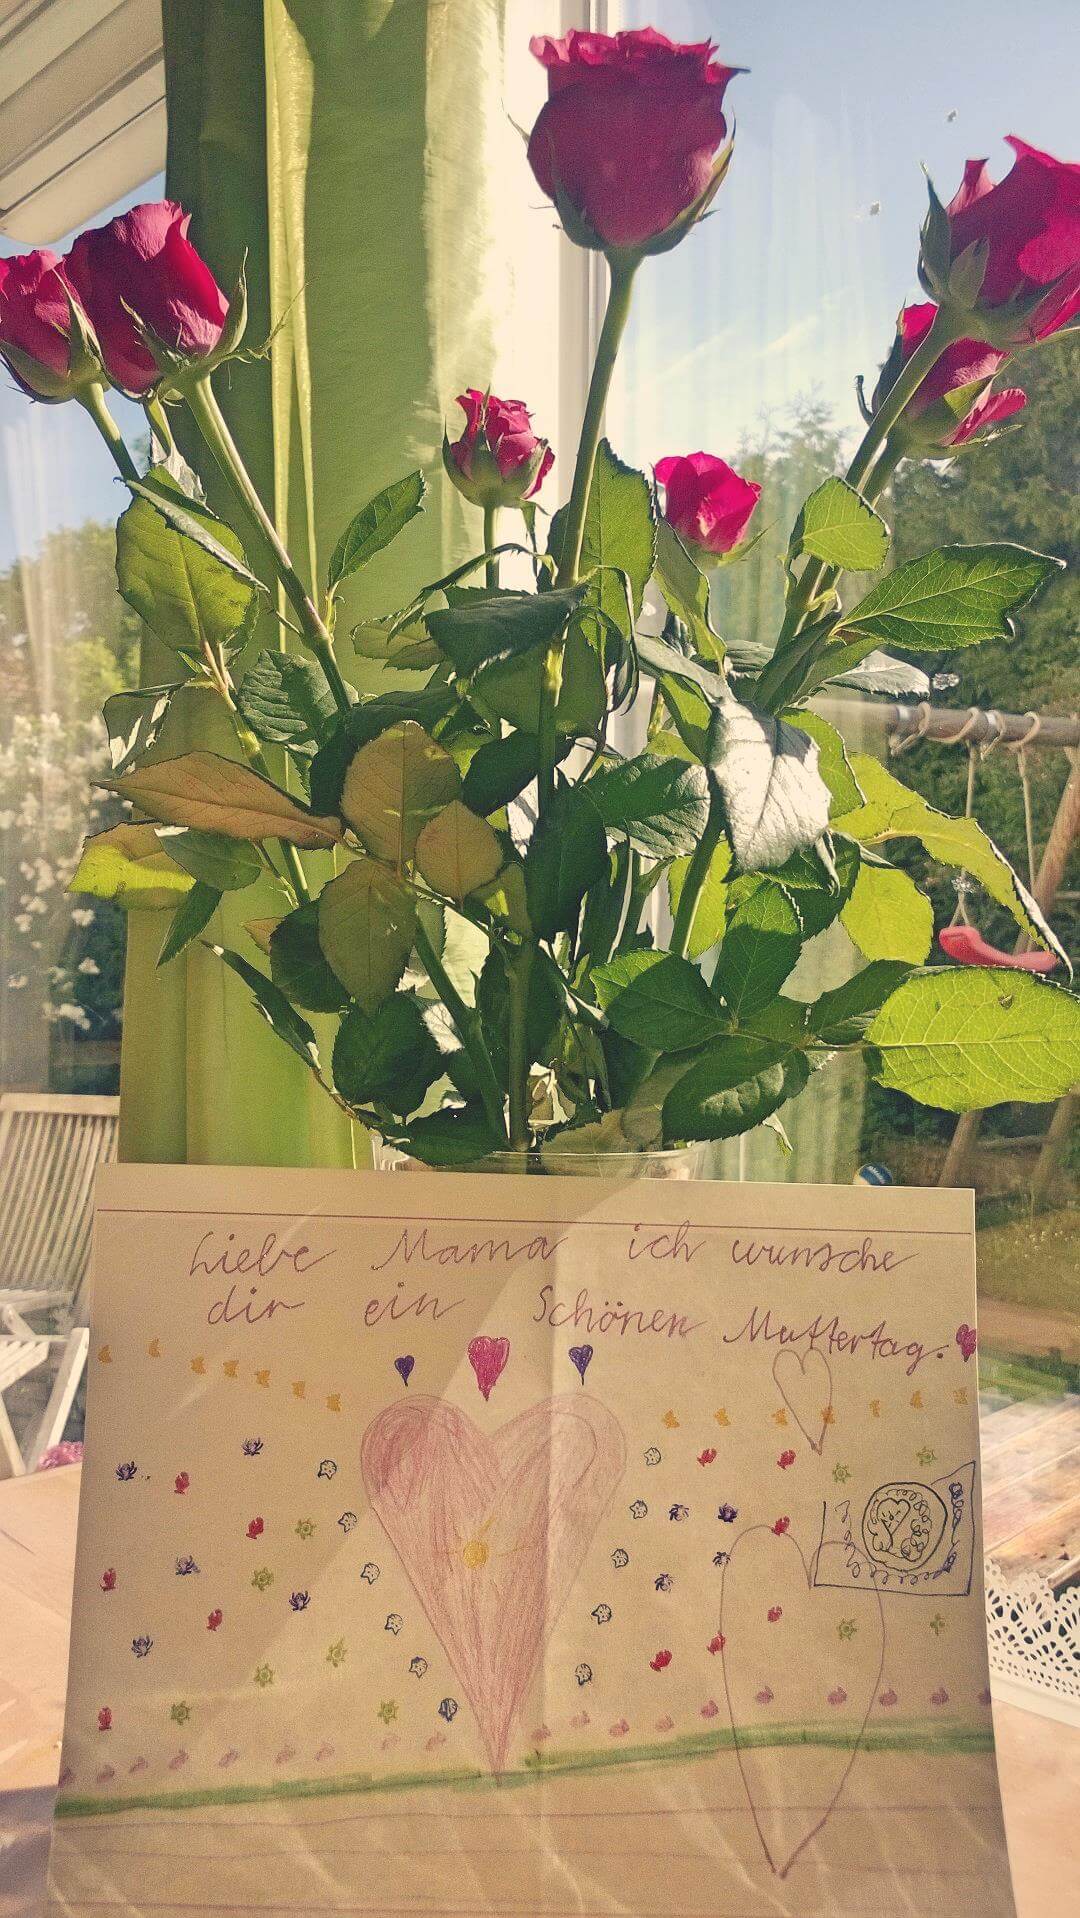 Liebe Mama ich wunsche
dir ein Schönen Muttertag.